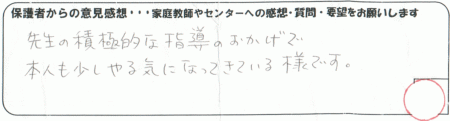 保護者からの意見感想・・・家庭教師やセンターへの感想・質問・要望をお願いします
先生の積極的な指導のおかげで
本人も少しやる気になってきている様です。